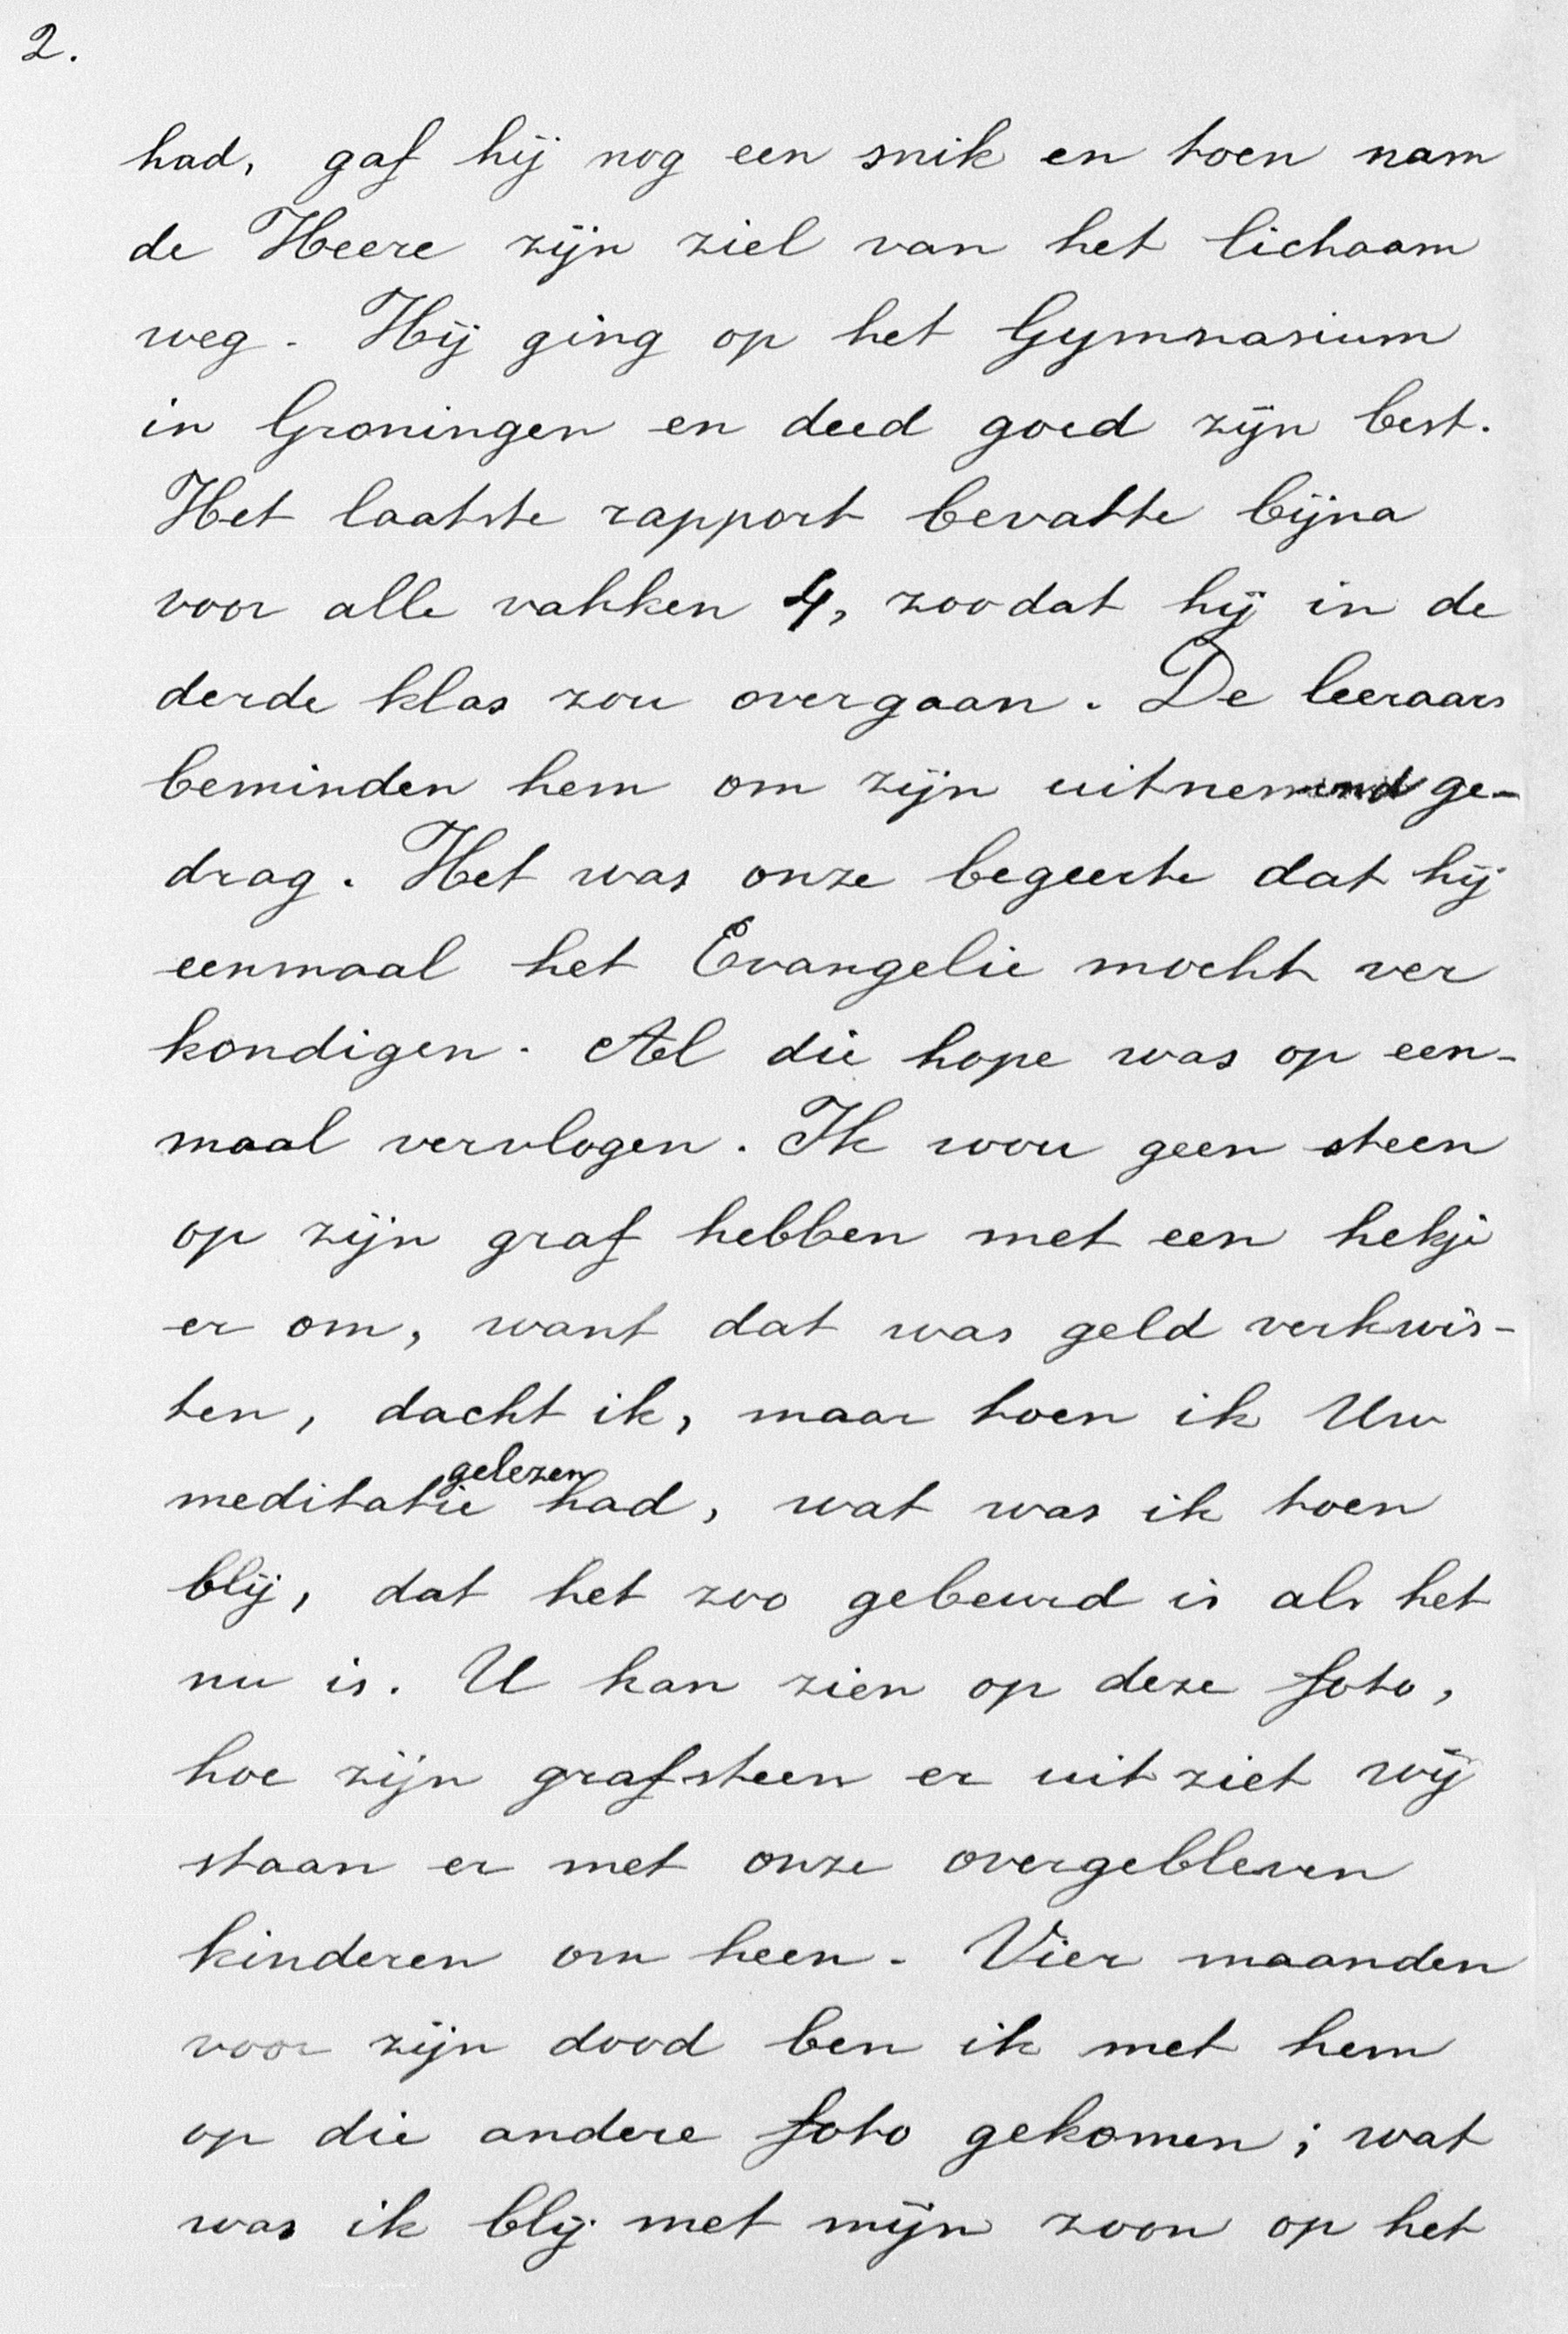 2.
had, gaf hij nog een snik en toen nam
de Heere zijn ziel van het lichaam
weg. Hij ging op het Gymnasium
in Groningen en deed goed zijn best.
Het laatste rapport bevatte bijna
voor alle vakken 4, zoodat hij in de
derde klas zou overgaan. De leeraars
beminden hem om zijn uitnemend ge-
drag. Het was onze begeerte dat hij
eenmaal het Evangelie mocht ver
kondigen. Al die hope was op een-
maal vervlogen. Ik wou geen steen
op zijn graf hebben met een hekje
er om, want dat was geld verkwis-
ten, dacht ik, maar toen ik Uw
gelezen
meditatie had, wat was ik toen
blij, dat het zoo gebeurd is als het
nu is. U kan zien op deze foto,
hoe zijn grafsteen er uit ziet wij
staan er met onze overgebleven
kinderen om heen. Vier maanden
voor zijn dood ben ik met hem
op die andere foto gekomen; wat
was ik blij met mijn zoon op het